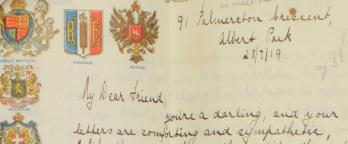 91 Palmerston Crescent,
Albert Park
28/7/19
GREAT BRITAIN.
FRANCE.
RUSSIA.
BELGIUM.
My Dear Friend,
you're a darling, and your
letters are comforting and sympathetic,